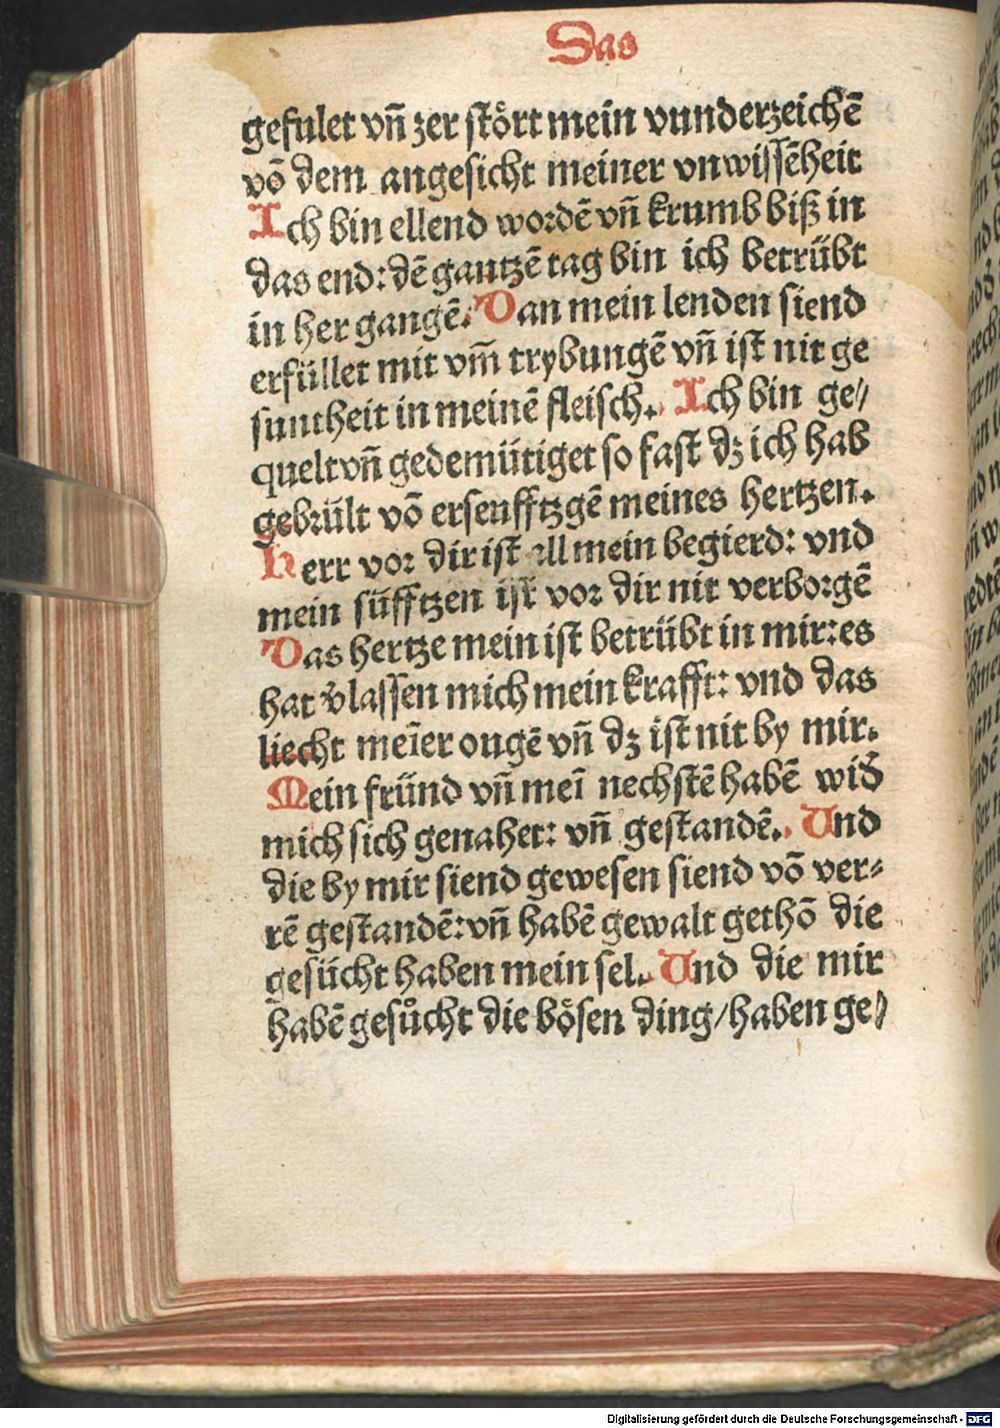 Das
gefulet vn̄ zer stoͤrt mein vunderzeichē
vō dem angesicht meiner vnwissēheit
Ich bin ellend wordē vn̄ krumb biß in
das end: dē gantzē tag bin ich betrübt
in her gangē. Dan mein lenden siend
erfüllet mit vm̄ trybungē vn̄ ist nit ge
suntheit in meinē fleisch. Ich bin ge⸗
quelt vn̄ gedemütiget so fast dꝫ ich hab
gebrült vō ersenfftzgē meines hertzen.
Herr vor dir ist all mein begierd: vnd
mein süfftzen ist vor dir nit verborgē
Das hertze mein ist betrübt in mir: es
hat v̄lassen mich mein krafft: vnd das
liecht meīer ougē vn̄ dꝫ ist nit by mir.
Mein fründ vn̄ meī nechstē habē wid̄
mich sich genahet: vn̄ gestandē. Und
die by mir siend gewesen siend vō ver⸗
rē gestandē: vn̄ habē gewalt gethō die
gesücht haben mein sel. Und die mir
habē gesuͦcht die boͤsen ding/haben ge⸗
Digitalisierung gefördert durch die Deutsche Forschungsgemeinschaft - DFG